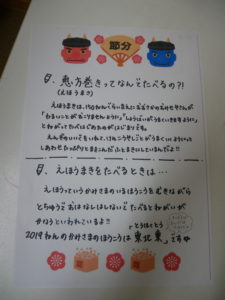 節分
Q、恵方巻きってなんでたべるの?!
(えほうまき)
えほうまきは、150ねんぐらいまえに おおさかのおみせやさんが
「わるいことが おこりませんように」「しょうばいがうまくいきますように」
とねがって たべはじめたのが はじまりです。
しあわせたっぷりと まきこんだ ふとまきにしているんだよ!!
Q、えほうまきをたべるときは…
えほうっていうかみさまのいるほうこうをむきながら
とちゅうでおはなしはしないで たべるとねがいが
かなうといわれているよ!!
とうほくとう
2019ねんのかみさまのほうこうは 東北東 です